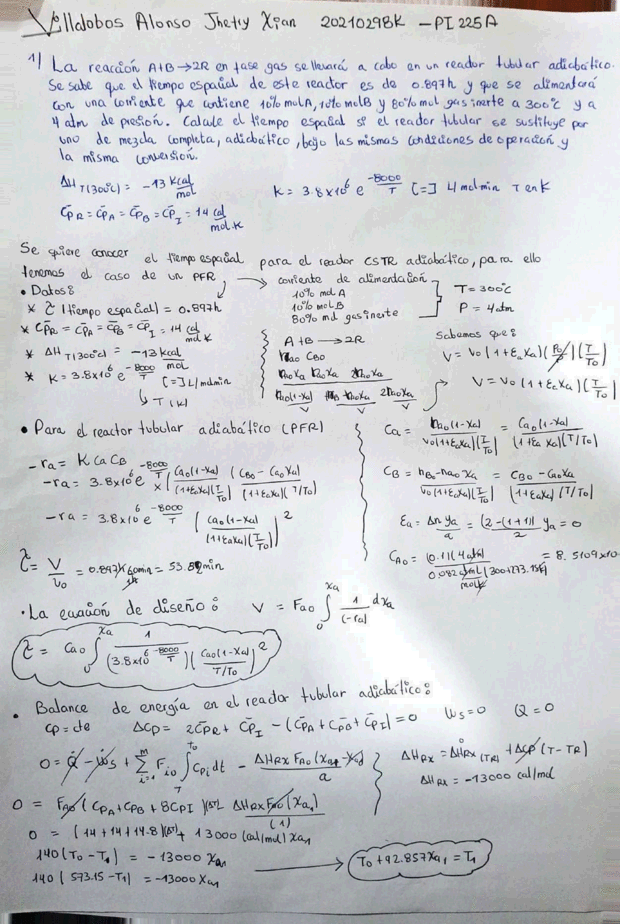 Villalobos Alonso Jhetsy Xian 20210298K - PI 225A
1) La reacción A+B → 2R en fase gas se llevará a cabo en un reactor tubular adiabático.
Se sabe que el tiempo espacial de este reactor es de 0.897h y que se alimentará
con una corriente que contiene 10% mol A, 10% mol B y 80% mol gas inerte a 300°C y a
4 atm de presión. Calcule el tiempo espacial si el reactor tubular se sustituye por
uno de mezcla completa, adiabático, bajo las mismas condiciones de operación y
la misma conversión.
ΔH T(300°C) = -13 Kcal/mol K = 3.8x10^6 e^(-8000/T) [=] L/mol min T en K
C̄pR = C̄pA = C̄pB = C̄pI = 14 cal/mol.K
Se quiere conocer el tiempo espacial para el reactor CSTR adiabático, para ello
tenemos el caso de un PFR
• Datos:
* τ (tiempo espacial) = 0.897h
* C̄pR = C̄pA = C̄pB = C̄pI = 14 cal/mol K
* ΔH T(300°C) = -13 Kcal/mol
* K = 3.8x10^6 e^(-8000/T) [=] L/mol min
T(K)
→ corriente de alimentación
10% mol A
10% mol B
80% mol gas inerte
T = 300°C
P = 4 atm
A+B → 2R
nao CBO
naoXa naoXa 2naoXa
nao(1-Xa)/V nB-naoXa/V 2naoXa/V
Sabemos que:
V = Vo (1+εaXa)(Po/P)(T/To)
V = Vo (1+εaXa)(T/To)
• Para el reactor tubular adiabático (PFR)
-ra = K Ca CB
-ra = 3.8x10^6 e^(-8000/T) x (Cao(1-Xa)/(1+εaXa)(T/To)) (CBO - CaoXa/(1+εaXa)(T/To))
-ra = 3.8x10^6 e^(-8000/T) (Cao(1-Xa)/(1+εaXa)(T/To))^2
Ca = nao(1-Xa)/Vo(1+εaXa)(T/To) = Cao(1-Xa)/(1+εaXa)(T/To)
CB = nBo-naoXa/Vo(1+εaXa)(T/To) = CBO - CaoXa/(1+εaXa)(T/To)
εa = Δn ya/a = (2-(1+1))/2 ya = 0
τ = V/vo = 0.897h x 60min/1h = 53.82min
CAo = (0.1)(4atm)/0.082 atm L/mol K (300+273.15K) = 8.5109x10
• La ecuación de diseño: V = Fao ∫0^Xa 1/(-ra) dXa
τ = Cao ∫0^Xa 1/(3.8x10^6 e^(-8000/T))(Cao(1-Xa)/T/To)^2
• Balance de energía en el reactor tubular adiabático:
Cp = cte ΔCp = 2C̄pR + C̄pI - (C̄pA + C̄pB + C̄pI) = 0 Ws = 0 Q = 0
0 = Q - Ws + Σ i=1^m Fio ∫T^To Cpi dt - ΔHRX FAO (Xa1 - Xa0)/a
ΔHRX = ΔH°RX(TR) + ΔCp (T-TR)
ΔHRX = -13000 cal/mol
0 = FAO (CPA + CPB + 8CPI)(ΔT) - ΔHRX FAO (Xa1)/(1)
0 = (14+14+14.8)(ΔT) + 13000 (cal/mol) Xa1
140 (To - T1) = -13000 Xa1 → To + 92.857Xa1 = T1
140 (573.15 - T1) = -13000 Xa1